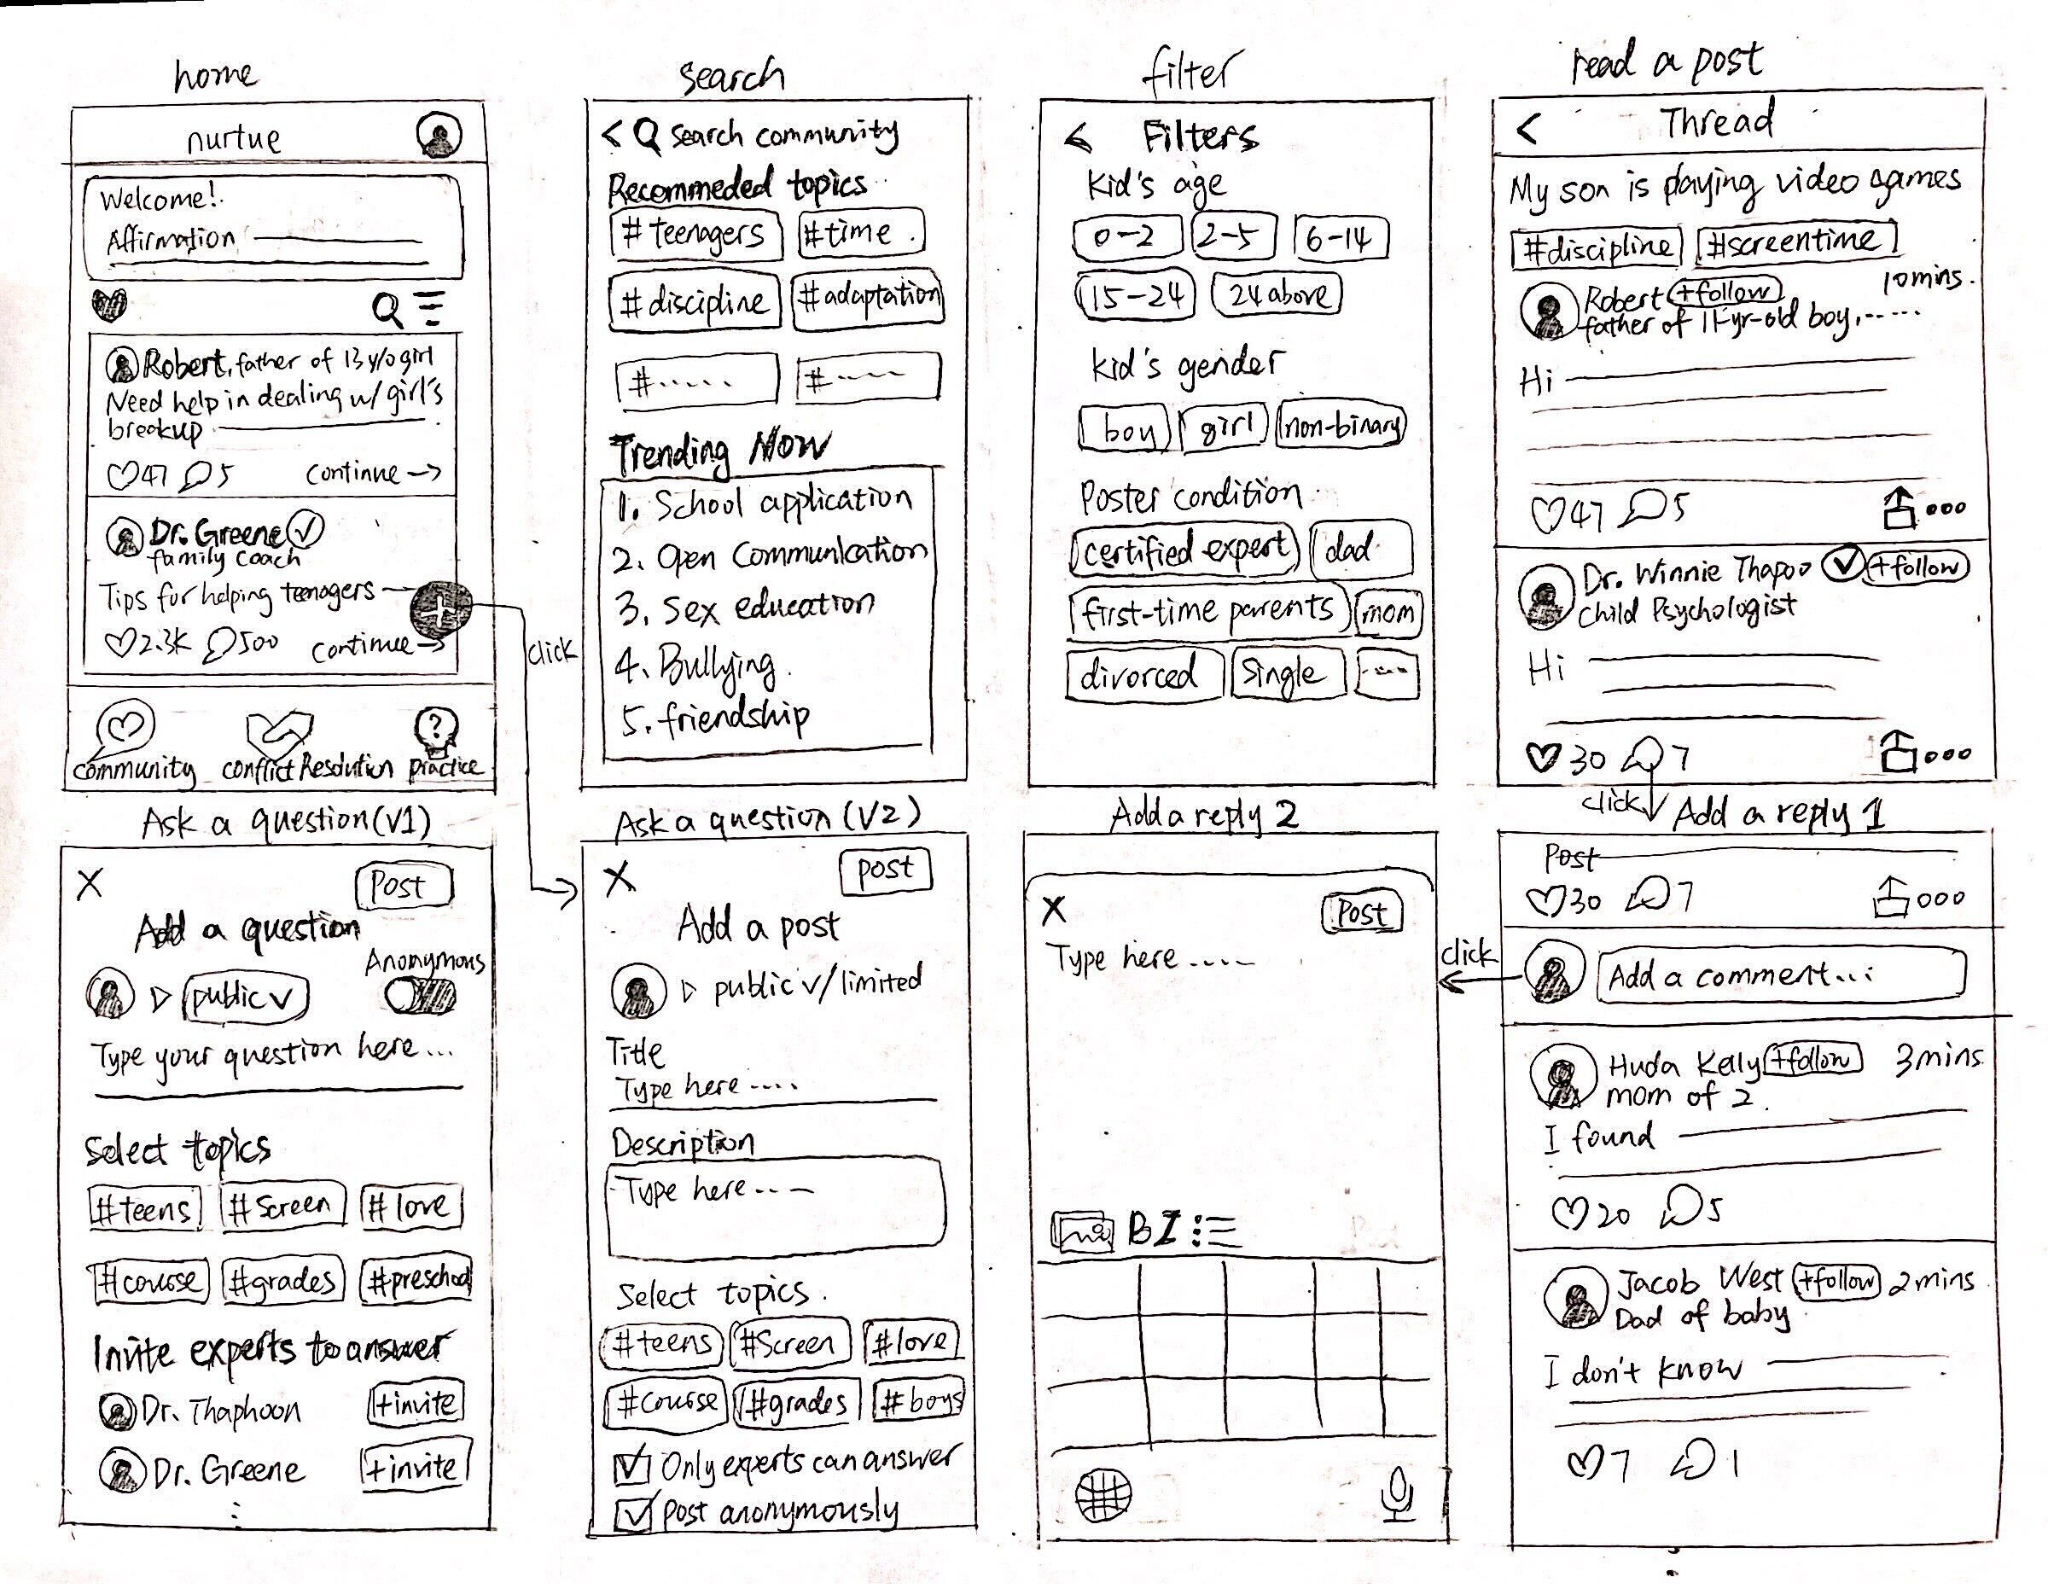 home
nurtue
Welcome!
Affirmation
Robert, father of 13 y/o girl
Need help in dealing w/ girl's
breakup
47 5 Continue →
Dr. Greene
family coach
Tips for helping teenagers
+
2.3K 500 Continue →
click
community conflict Resolution practice
?
search
< search community
Recommeded topics
#teenagers #time
#discipline #adaptation
#..... #----
Trending Now
1. School application
2. Open Communication
3. Sex education
4. Bullying
5. friendship
filter
Filters
Kid's age
0-2 2-5 6-14
15-24 24 above
Kid's gender
boy girl non-binary
Poster condition
certified expert dad
first-time parents mom
divorced Single ----
read a post
< Thread
My son is playing video games
#discipline #screentime
10 mins.
Robert +follow
father of 11-yr-old boy, ......
Hi
47 5 ooo
Dr. Winnie Thapoo +follow
Child Psychologist
Hi
30 7 ooo
click
Ask a question (V1)
X Post
Add a question
Anonymous
▷ public ∨
Type your question here ...
Select topics
#teens #Screen #love
#course #grades #preschool
Invite experts to answer
Dr. Thaphoon +invite
Dr. Greene +invite
Ask a question (V2)
X post
Add a post
▷ public ∨/limited
Title
Type here ....
Description
Type here ...
Select topics.
#teens #Screen #love
#course #grades #boys
Only experts can answer
Post anonymously
Add a reply 2
X Post
Type here ....
B I
click
Add a reply 1
Post
30 7 ooo
Add a comment...
Huda Kelly +follow 3 mins
mom of 2.
I found
20 5
Jacob West +follow 2 mins
Dad of baby
I don't know
7 1